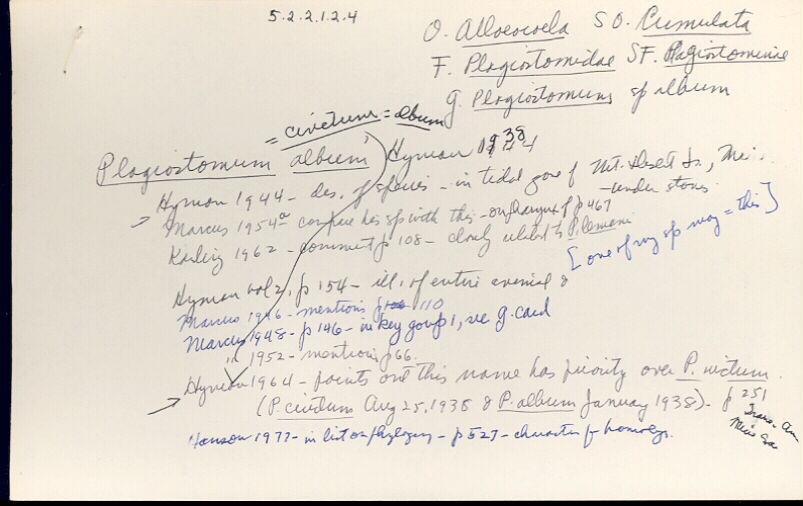 5.2.2.1.2.4
O. Alloeocoela SO. Cumulata
F. Plagiostomidae SF. Plagiostominae
g. Plagiostomum sp album
= cinctum = album
Plagiostomum album Hyman 1938
Hyman 1944 - des. of species - in tidal zone of Mt. Desert Is., Me.
- under stones
Marcus 1954a compare his sp with this - on pharynx p 467
Karling 1962 - comment p 108 - closely related to P. lemani
[one of my sp may = this]
Hyman vol 2, p 154 - ill. of entire animal
Marcus 1946 - mentions p 110
Marcus 1948 - p 146 - in key group 1, see g. card
" 1952 - mentions p 66.
Hyman 1964 - points out this name has priority over P. cinctum
(P. cinctum Aug 25, 1938 & P. album January 1938) - p 251
Trans. Am
Micro Soc
Hanson 1977 - in list on phylogeny - p 527 - character for homology.